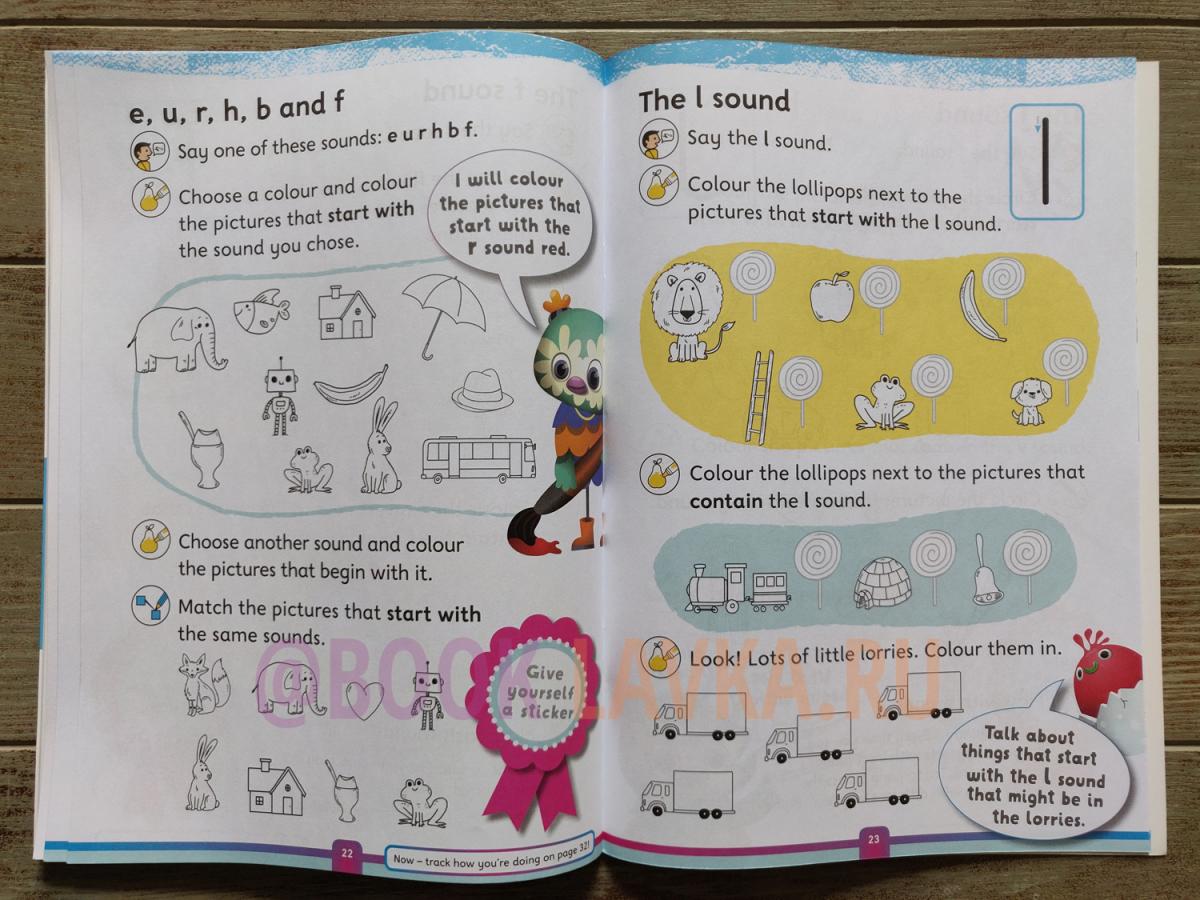 e, u, r, h, b and f
Say one of these sounds: e u r h b f.
Choose a colour and colour
the pictures that start with
the sound you chose.
I will colour
the pictures that
start with the
r sound red.
Choose another sound and colour
the pictures that begin with it.
Match the pictures that start with
the same sounds.
Give
yourself
a sticker
22
Now – track how you're doing on page 32!
The l sound
l
Say the l sound.
Colour the lollipops next to the
pictures that start with the l sound.
Colour the lollipops next to the pictures that
contain the l sound.
Look! Lots of little lorries. Colour them in.
Talk about
things that start
with the l sound
that might be in
the lorries.
23
@BOOK_LAVKA.RU